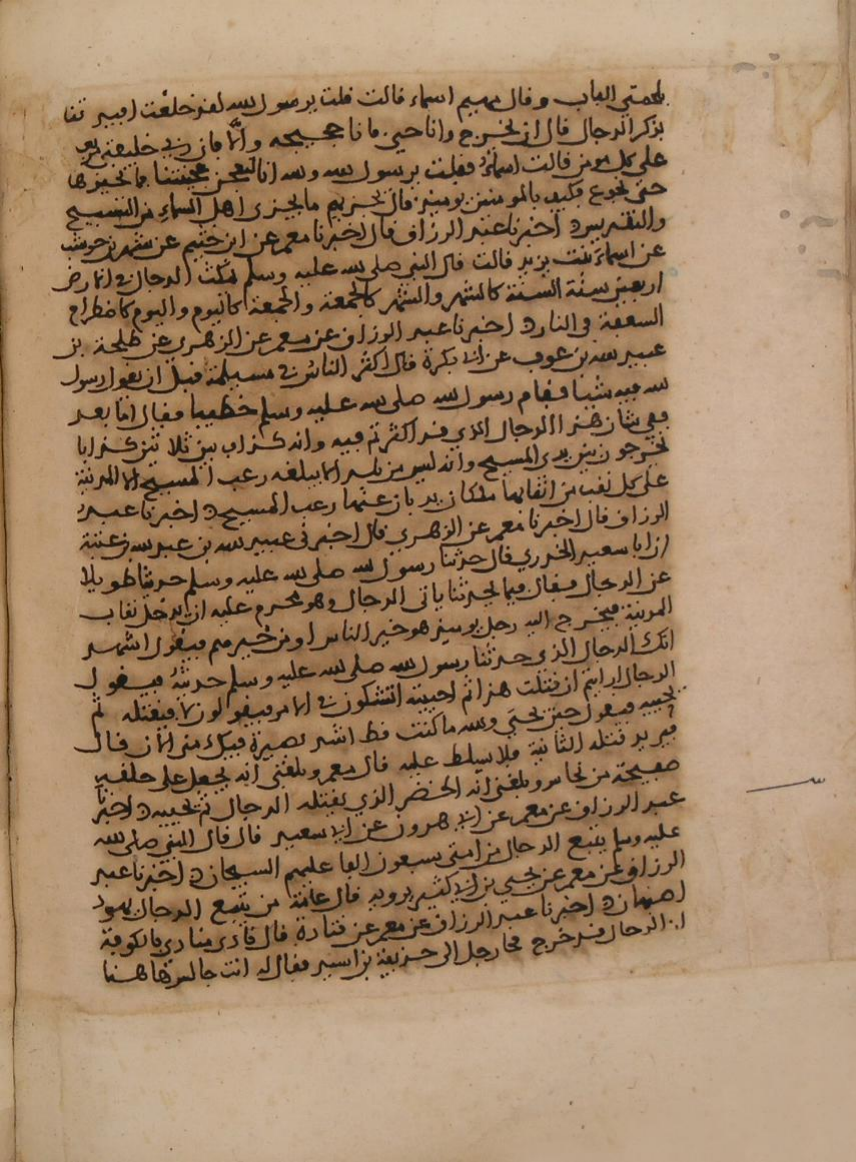 بلحمتي الباب وقال مهيم اسماء قالت قلت يرسول الله لقد خلعت افيدتنا
بذكر الدجال قال ان يخرج وانا حي فانا حجيجه والا فان ربي خليفتي
على كل مومن قالت اسماء فقلت يرسول الله والله انا لنعجن عجينتنا فما نختبزها
حتى نجوع فكيف بالمومنين يوميذ قال يجزيهم ما يجزى اهل السماء من التسبيح
والتقديس اخبرنا عبد الرزاق قال اخبرنا معمر عن ابن خثيم عن شهر بن حوشب
عن اسماء بنت يزيد قالت قال النبي صلى الله عليه وسلم يمكث الدجال في الارض
اربعين سنة السنة كالشهر والشهر كالجمعة والجمعة كاليوم واليوم كاضطرام
السعفة في النار اخبرنا عبد الرزاق عن معمر عن الزهري عن طلحة بن
عبد الله بن عوف عن ابي بكرة قال اكثر الناس في مسيلمة قبل ان يقول رسول
الله فيه شيئا فقام رسول الله صلى الله عليه وسلم خطيبا فقال اما بعد
ففي شان هذا الرجال الذي قد اكثرتم فيه وانه كذاب من ثلاثين كذابا
يخرجون بين يدي المسيح وانه ليس من بلد الا يبلغه رعب المسيح الا المدينة
على كل نقب من انقابها ملكان يذبان عنها رعب المسيح اخبرنا عبد
الرزاق قال اخبرنا معمر عن الزهري قال اخبرني عبيد الله بن عبد الله بن عتبة
ان ابا سعيد الخدري قال حدثنا رسول الله صلى الله عليه وسلم حديثا طويلا
عن الدجال فقال فيما يحدثنا ياتي الدجال وهو محرم عليه ان يدخل نقاب
المدينة فيخرج اليه رجل يوميذ هو خير الناس او من خيرهم فيقول اشهد
انك الدجال الذي حدثنا رسول الله صلى الله عليه وسلم حديثه فيقول
الدجال ارايتم ان قتلت هذا ثم احييته اتشكون في الامر فيقولون لا فيقتله ثم
يحييه فيقول حين يحيى والله ما كنت قط اشد بصيرة فيك مني الان قال
فيريد قتله الثانية فلا يسلط عليه قال معمر وبلغني انه يجعل على حلقه
صفيحة من نحاس وبلغني انه الخضر الذي يقتله الدجال ثم يحييه اخبرنا
عبد الرزاق عن معمر عن ابي هرون عن ابي سعيد قال قال النبي صلى الله
عليه وسلم يتبع الدجال من امتي سبعون الفا عليهم السيجان اخبرنا عبد
الرزاق عن معمر عن يحيى بن ابي كثير يرويه قال عامة من يتبع الدجال يهود
اصبهان اخبرنا عبد الرزاق عن معمر عن قتادة قال نادى منادي بالكوفة
ان الدجال قد خرج فجا رجل الى حذيفة بن اسيد فقال له انت جالس هاهنا